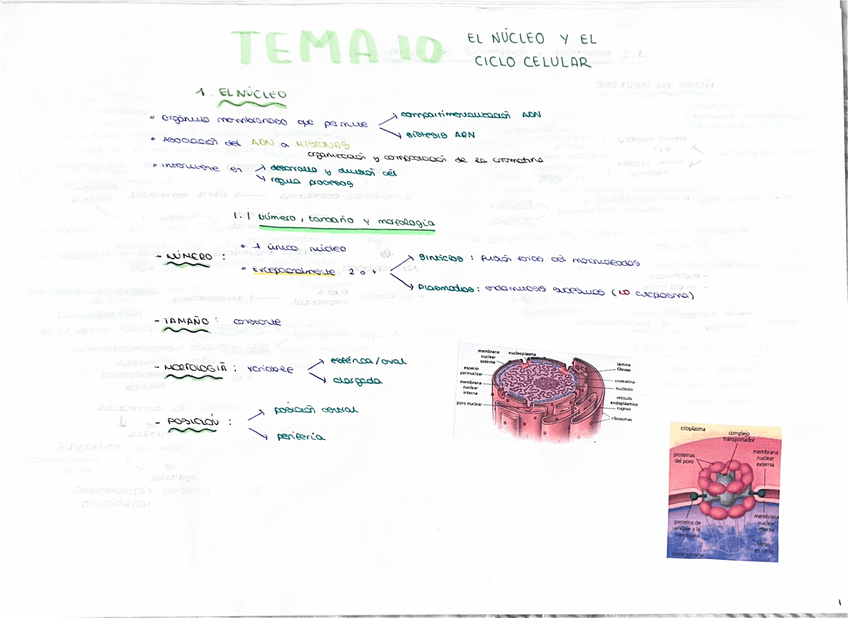 TEMA 10
EL NÚCLEO Y EL
CICLO CELULAR
1. EL NÚCLEO
• orgánulo membranoso que permite → compartimentalización ADN
→ síntesis ARN
• Asociación del ADN a HISTONAS
organización y compactación de la cromatina
• interviene en → desarrollo y división cél
→ regula procesos
1.1 Número, tamaño y morfología
- NÚMERO :
• 1 único núcleo
• excepcionalmente 2 o +
→ sincicios : fusión varias cél mononucleadas
→ plasmodios : endomitosis sucesivas (NO citoplasma)
- TAMAÑO : constante
- MORFOLOGÍA : variable → esférica / oval
→ alargada
- POSICIÓN : → posición central
→ periferia
membrana nuclear externa
nucleoplasma
espacio perinuclear
membrana nuclear interna
poro nuclear
lámina fibrosa
cromatina
nucléolo
retículo endoplásmico rugoso
ribosomas
citoplasma
complejo transportador
proteínas del poro
membrana nuclear externa
proteína de anclaje a la membrana
membrana nuclear interna
1